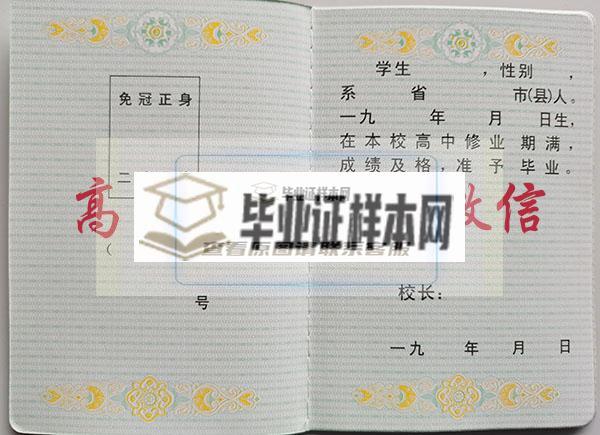 免冠正身
二
高
(
号
学生 ，性别 ，
系 省 市(县)人。
一九 年 月 日生,
在本校高中修业期满,
成绩及格,准予毕业。
信
毕业证样本网
毕业证样本网
查看原图请联系客服
校长:
一九 年 月 日